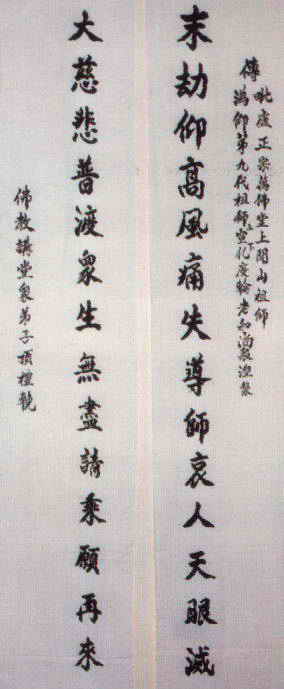 毗盧正宗萬佛堂上開山祖師
傳溈第九代祖師上宣下化度輪老和尚涅槃
末劫仰高風痛失導師哀人天眼滅
大慈悲普渡眾生無盡請乘願再來
佛教講堂眾弟子頂禮輓